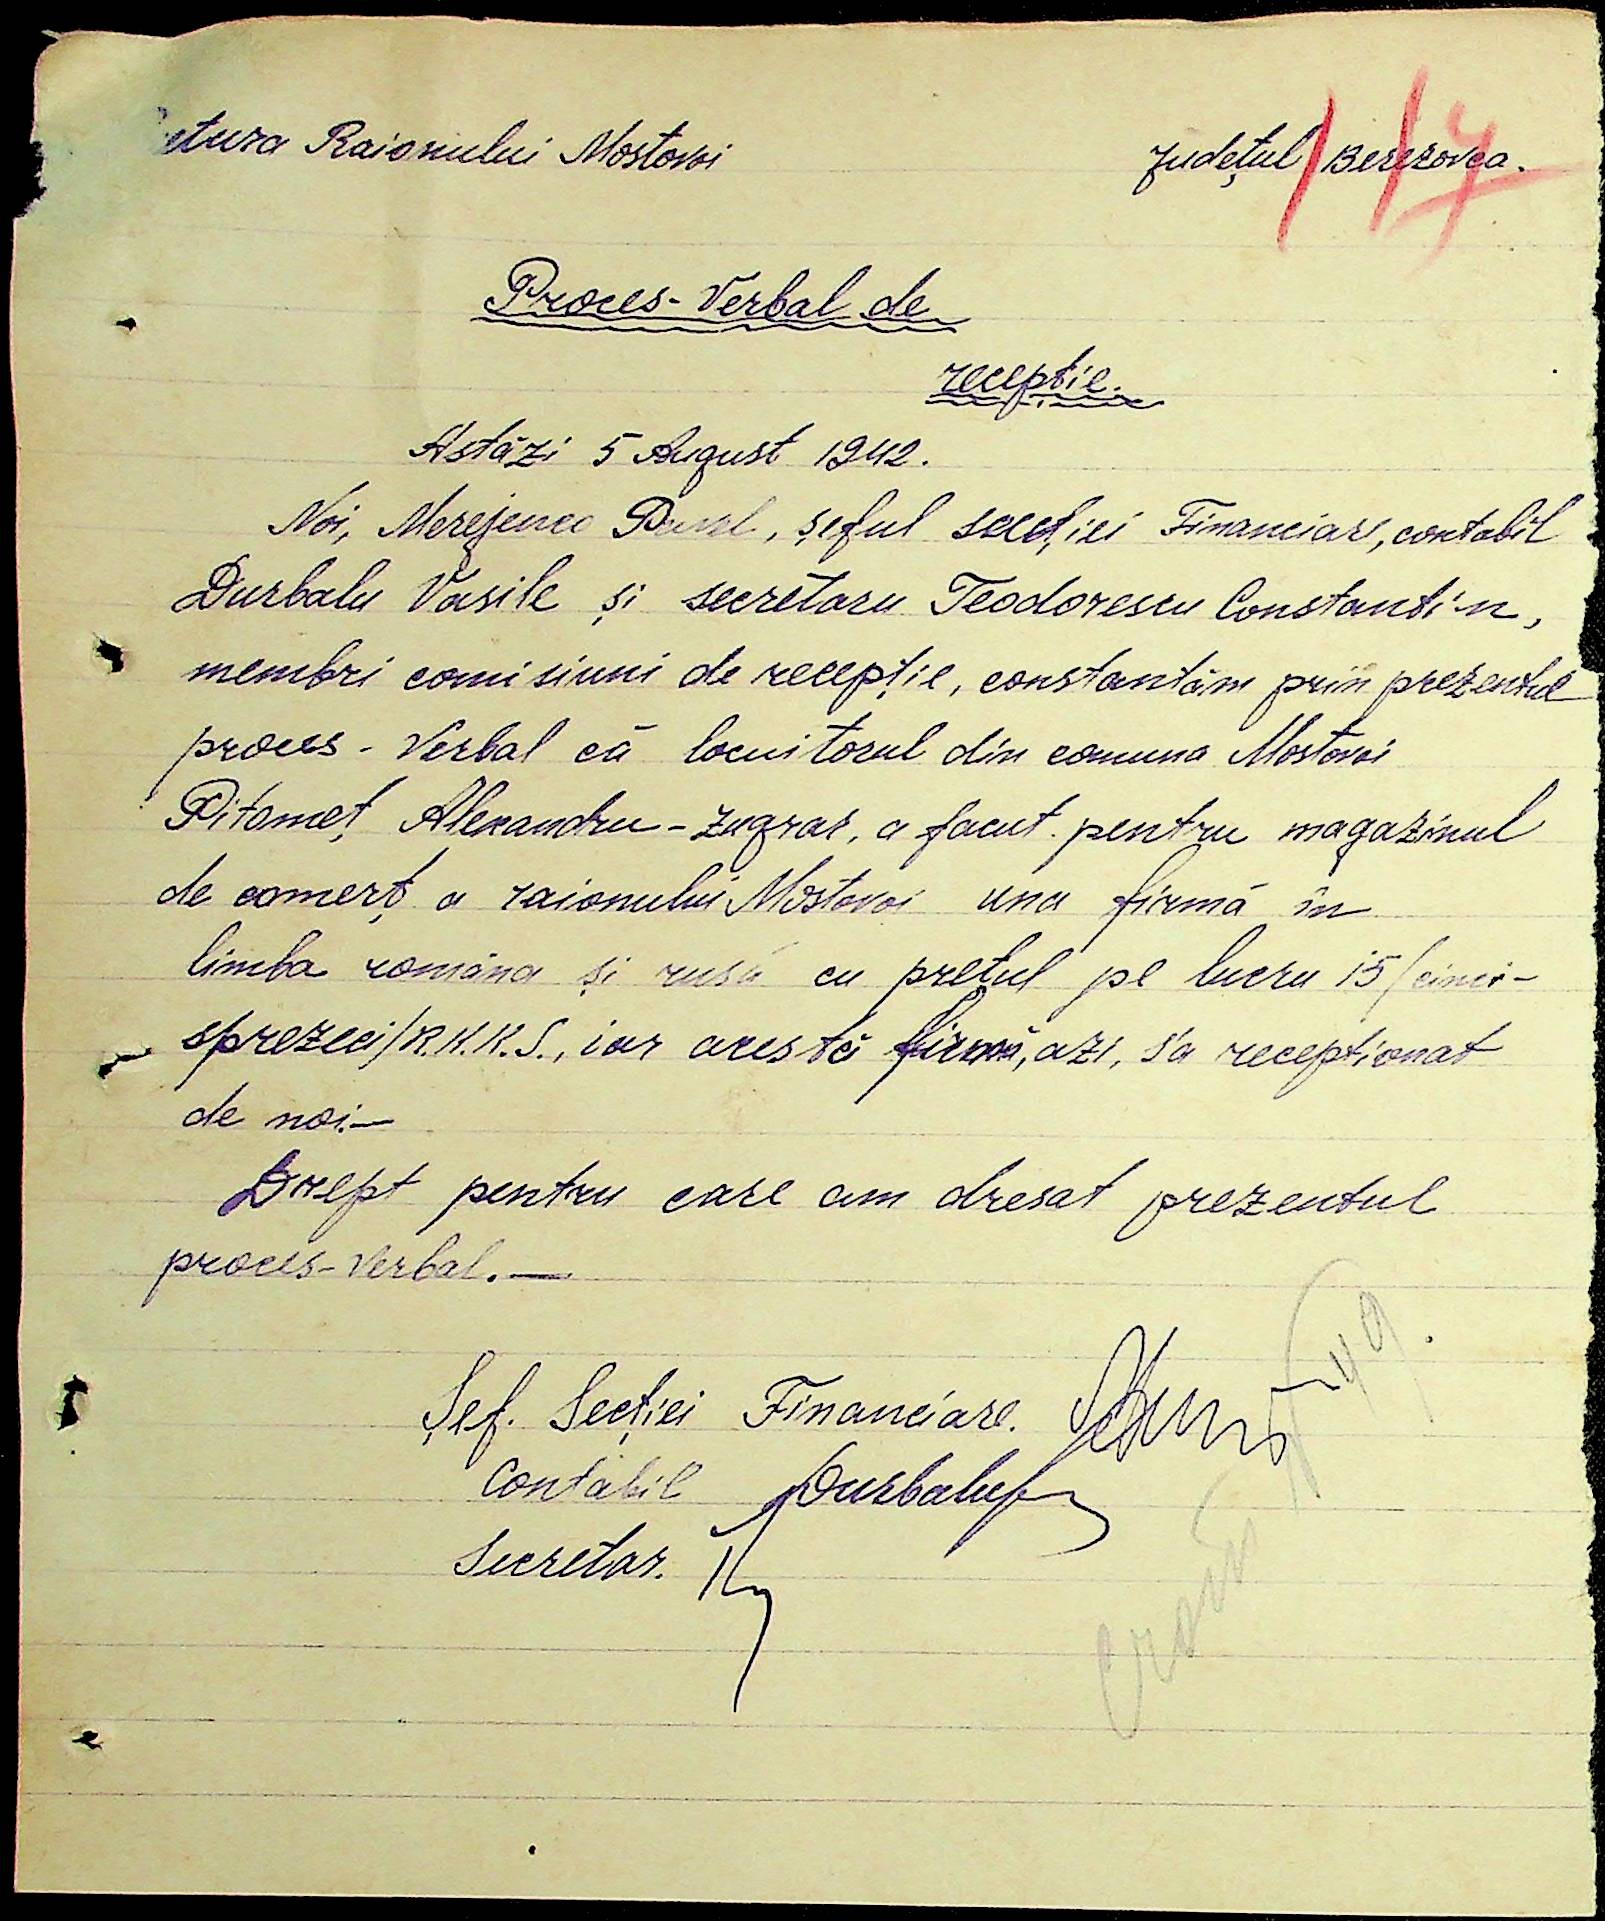 etura Raionului Mostovoi
Județul Berezovca.
Proces-Verbal de
recepție.
Astăzi 5 August 1942.
Noi, Merejenco Pavel, șeful secției Financiare, contabil
Durbalu Vasile și secretaru Teodorescu Constantin,
membri comisiuni de recepție, constantăm prin prezentul
proces-Verbal că locuitorul din comuna Mostovoi
Pitomeț Alexandru-zugrav, a facut pentru magazinul
de comerț a raionului Mostovoi una firmă în
limba româna și rusă cu prețul pe lucru 15/cinci-
sprezeci/R.K.K.S., iar acestă firmă, azi, s'a recepționat
de noi.—
Drept pentru care am dresat prezentul
proces-Verbal.—
Șef. Secției Financiare.
Contabil Durbalu
Secretar.